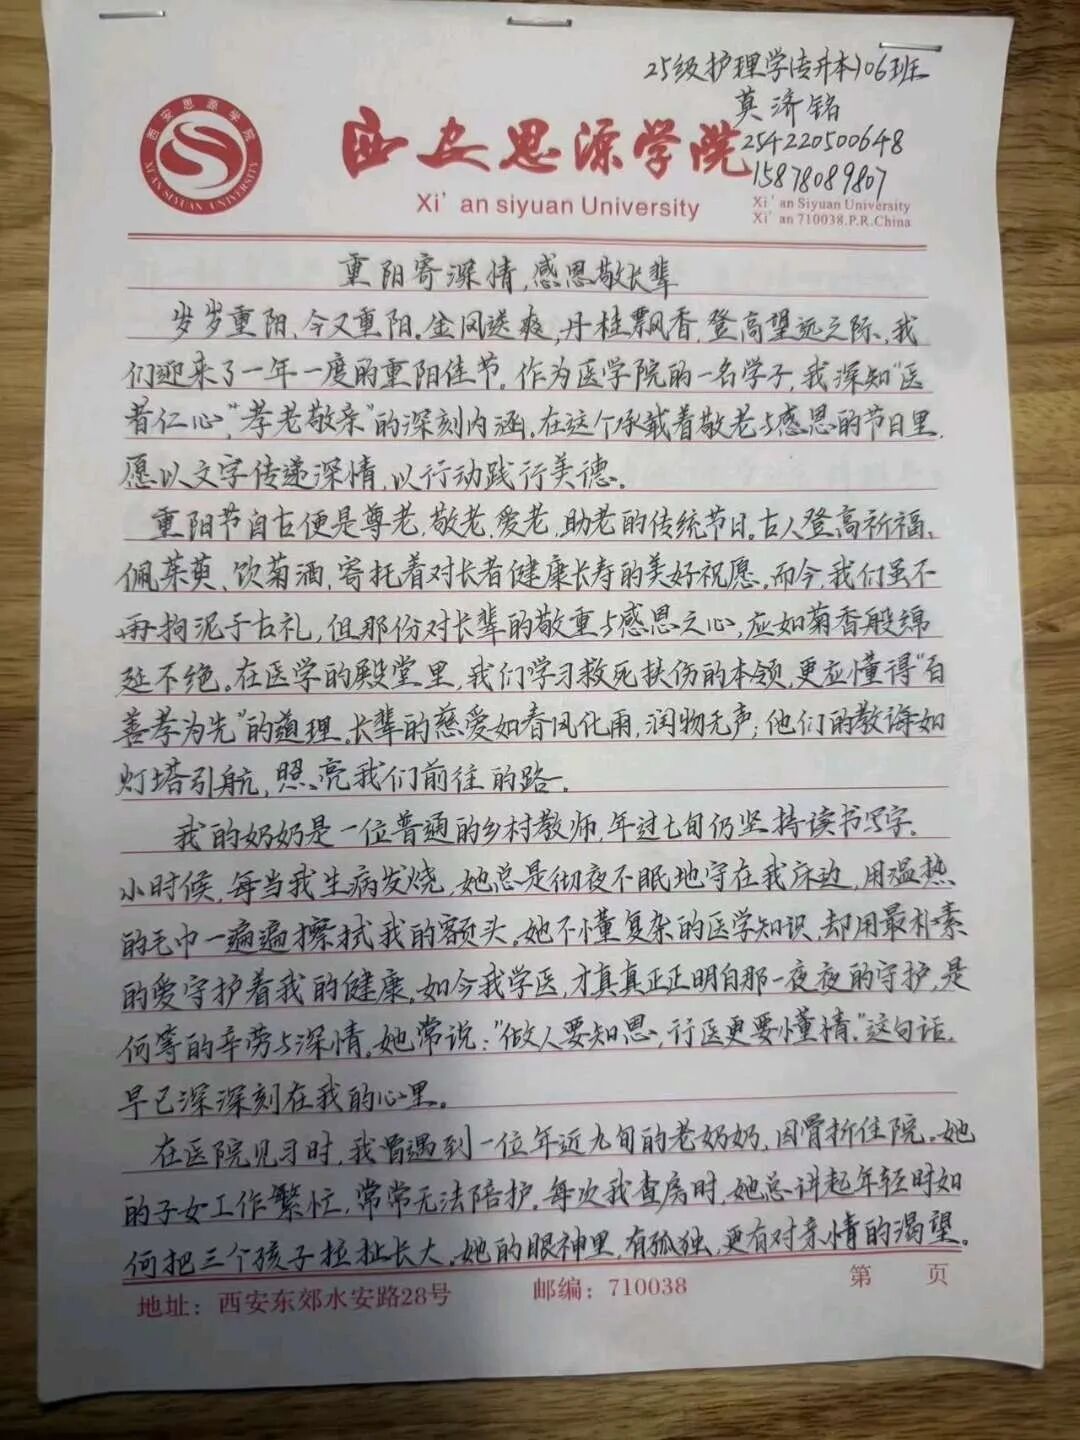 25级护理学(专升本)06班
莫济铭
254220500648
15878089807
西安思源学院
XI'AN SIYUAN UNIVERSITY
西安思源学院
Xi' an siyuan University
Xi' an Siyuan University
Xi' an 710038.P.R.China
重阳寄深情,感恩敬长辈
岁岁重阳,今又重阳。金风送爽,丹桂飘香,登高望远之际,我
们迎来了一年一度的重阳佳节。作为医学院的一名学子,我深知“医
者仁心”,“孝老敬亲”的深刻内涵。在这个承载着敬老与感恩的节日里,
愿以文字传递深情,以行动践行美德。
重阳节自古便是尊老,敬老,爱老,助老的传统节日。古人登高祈福、
佩茱萸、饮菊酒,寄托着对长者健康长寿的美好祝愿。而今,我们虽不
再拘泥于古礼,但那份对长辈的敬重与感恩之心,应如菊香般绵
延不绝。在医学的殿堂里,我们学习救死扶伤的本领,更应懂得“百
善孝为先”的道理。长辈的慈爱如春风化雨,润物无声;他们的教诲如
灯塔引航,照亮我们前往的路。
我的奶奶是一位普通的乡村教师,年过七旬仍坚持读书写字。
小时候,每当我生病发烧,她总是彻夜不眠地守在我床边,用温热
的毛巾一遍遍擦拭我的额头。她不懂复杂的医学知识,却用最朴素
的爱守护着我的健康。如今我学医,才真真正正明白那一夜夜的守护,是
何等的辛劳与深情。她常说:“做人要知恩,行医更要懂情。”这句话,
早已深深刻在我的心里。
在医院见习时,我曾遇到一位年近九旬的老奶奶,因骨折住院。她
的子女工作繁忙,常常无法陪护。每次我查房时,她总讲起年轻时如
何把三个孩子拉扯长大。她的眼神里,有孤独,更有对亲情的渴望。
地址:西安东郊水安路28号
邮编:710038
第 页